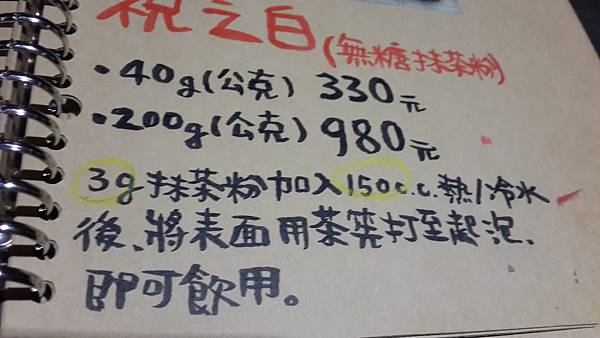 祝之白(無糖抹茶粉)
•40g(公克) 330元
•200g(公克) 980元
3g抹茶粉加入150c.c.熱/冷水
後、將表面用茶筅打至起泡、
即可飲用。